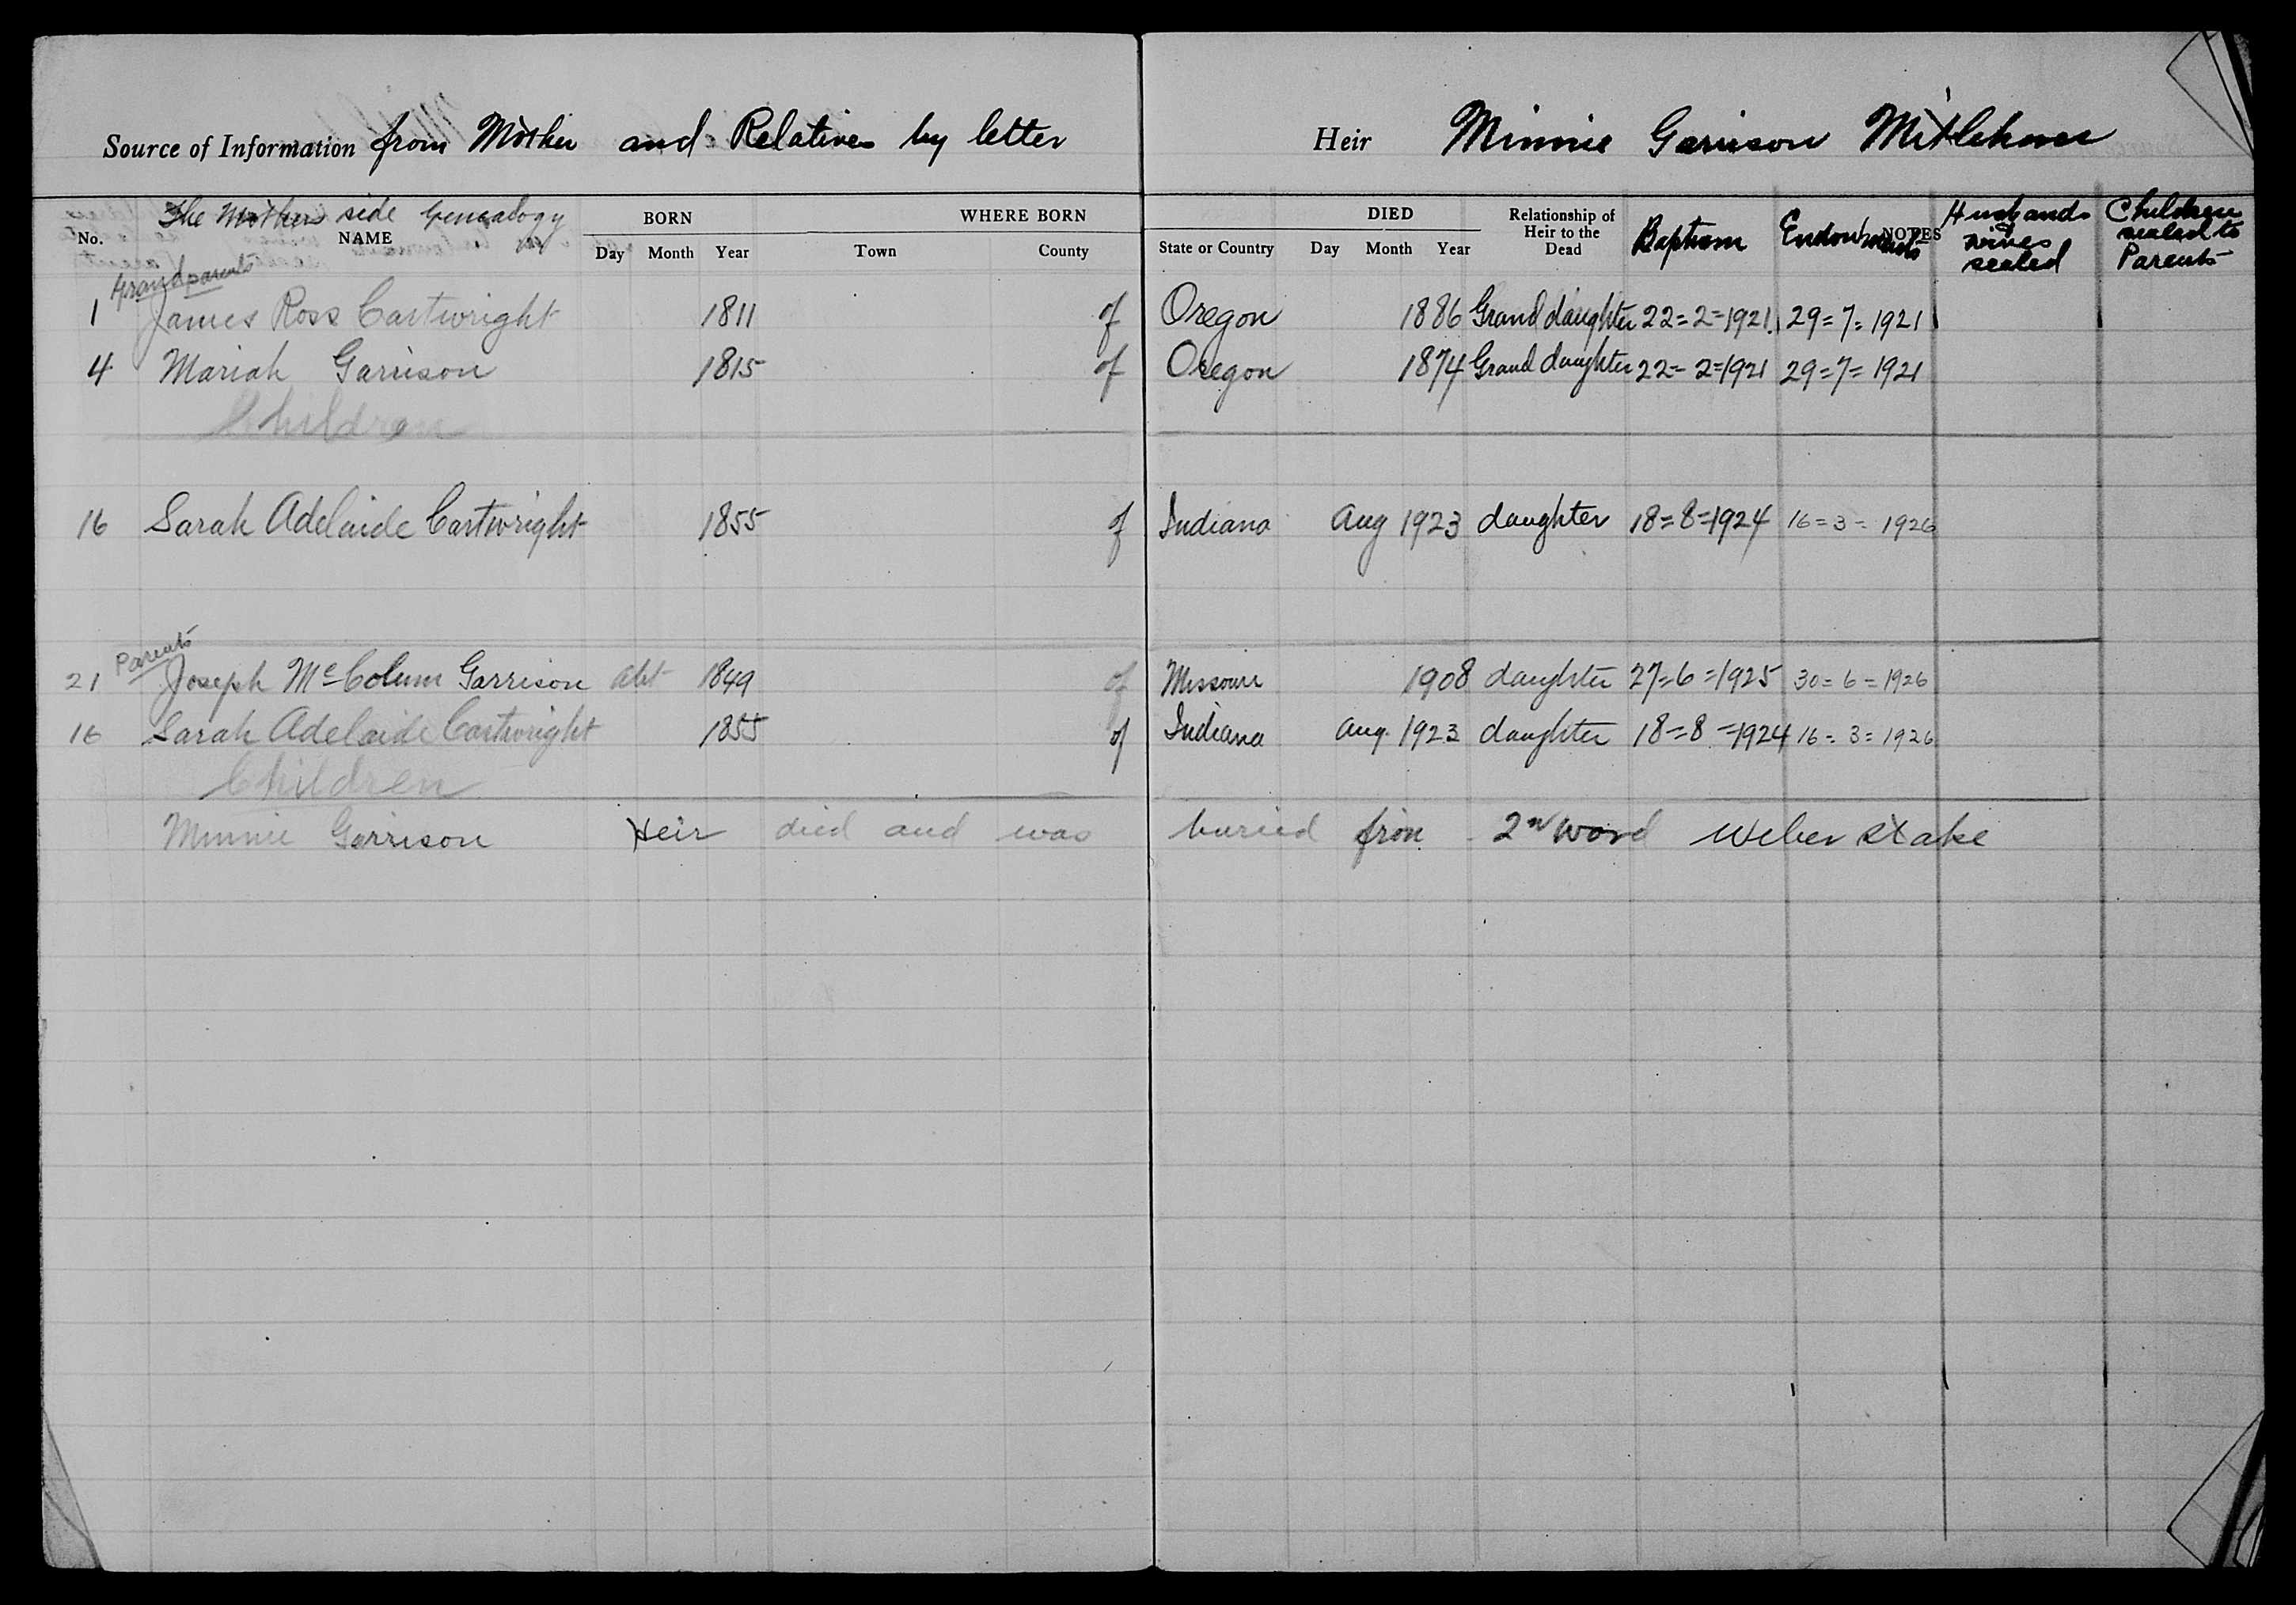 Source of Information from Mother and Relatives by letter
Heir Minnie Garrison
The Mother side Genealogy
No. NAME BORN Day Month Year WHERE BORN Town County State or Country DIED Day Month Year Relationship of Heir to the Dead Baptism Endowments NOTES Husbands wives sealed Children sealed to Parents
Grandparents
1 James Ross Cartwright 1811 of Oregon 1886 Grand daughter 22=2=1921 29=7=1921
4 Mariah Garrison 1815 of Oregon 1874 Grand daughter 22=2=1921 29=7=1921
Children
16 Sarah Adelaide Cartwright 1855 of Indiana Aug 1923 daughter 18=8=1924 16=3=1926
Parents
21 Joseph McColum Garrison abt 1849 of Missouri 1908 daughter 27=6=1925 30=6=1926
16 Sarah Adelaide Cartwright 1855 of Indiana Aug. 1923 daughter 18=8=1924 16=3=1926
Children
Minnie Garrison Heir died and was buried from 2n Word Weber Stake